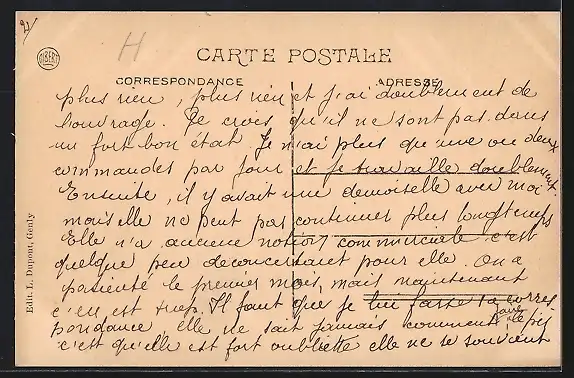 2)
H
CARTE POSTALE
CORRESPONDANCE
ADRESSE
plus rien, plus rien et j'ai doublement de
l'ouvrage. Je crois qu'il ne sont pas dans
un fort bon état. Je n'ai plus que une ou deux
commandes par jour et je travaille doublement.
Ensuite, il y avait une demoiselle avec moi
mais elle ne peut pas continuer plus longtemps
Elle n'a aucune notion commerciale c'est
quelque peu déconcertant pour elle. On a
patienté le premier mois, mais maintenant
c'en est trop. Il faut que je lui fasse sa corres
pondance elle ne sait jamais comment faire
le pis
c'est qu'elle est fort oubliette elle ne se souvient
Edit. L. Dupont, Genly